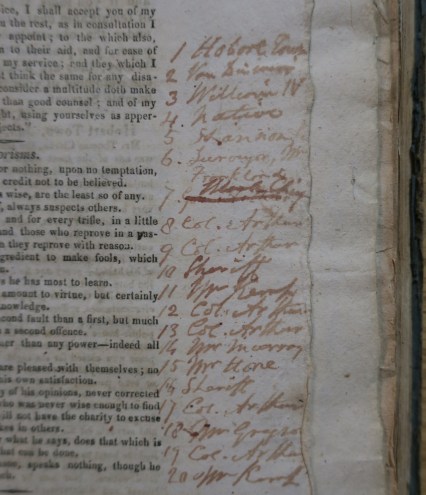 ice, I shall accept you of my
n the rest, as in consultation I
appoint; to the which also,
n to their aid, and for ease of
my service; and they which I
t think the same for any disa-
consider a multitude doth make
than good counsel; and of my
ht, using yourselves as apper-
jects."
ORISMS.
or nothing, upon no temptation,
credit not to be believed.
wise, are the least so of any.
, always suspects others.
and for every trifle, in a little
nd those who reprove in a pas-
n they reprove with reason.
gredient to make fools, which
n.
s he has most to learn.
amount to virtue, but certainly
nowledge.
ond fault than a first, but much
n a second offence.
her than any power—indeed all
are pleased with themselves; no
his own satisfaction.
y of his opinions, never corrected
ho was never wise enough to find
ll not have the charity to excuse
kes in others.
r what he says, does that which is
hat can be done.
nse, speaks nothing, though he
1 Hobart Town
2 Van
3 William IV
4. Native
5
6. Surveyor,
7.
8 Col. Arthur
9 Col. Arthur
10 Sheriff
11 Mr
12 Col. Arthur
13 Col. Arthur
14 Mr Murray
15 Mr Hone
16 Sheriff
17 Col. Arthur
18 Mr
19 Col. Arthur
20 Mr